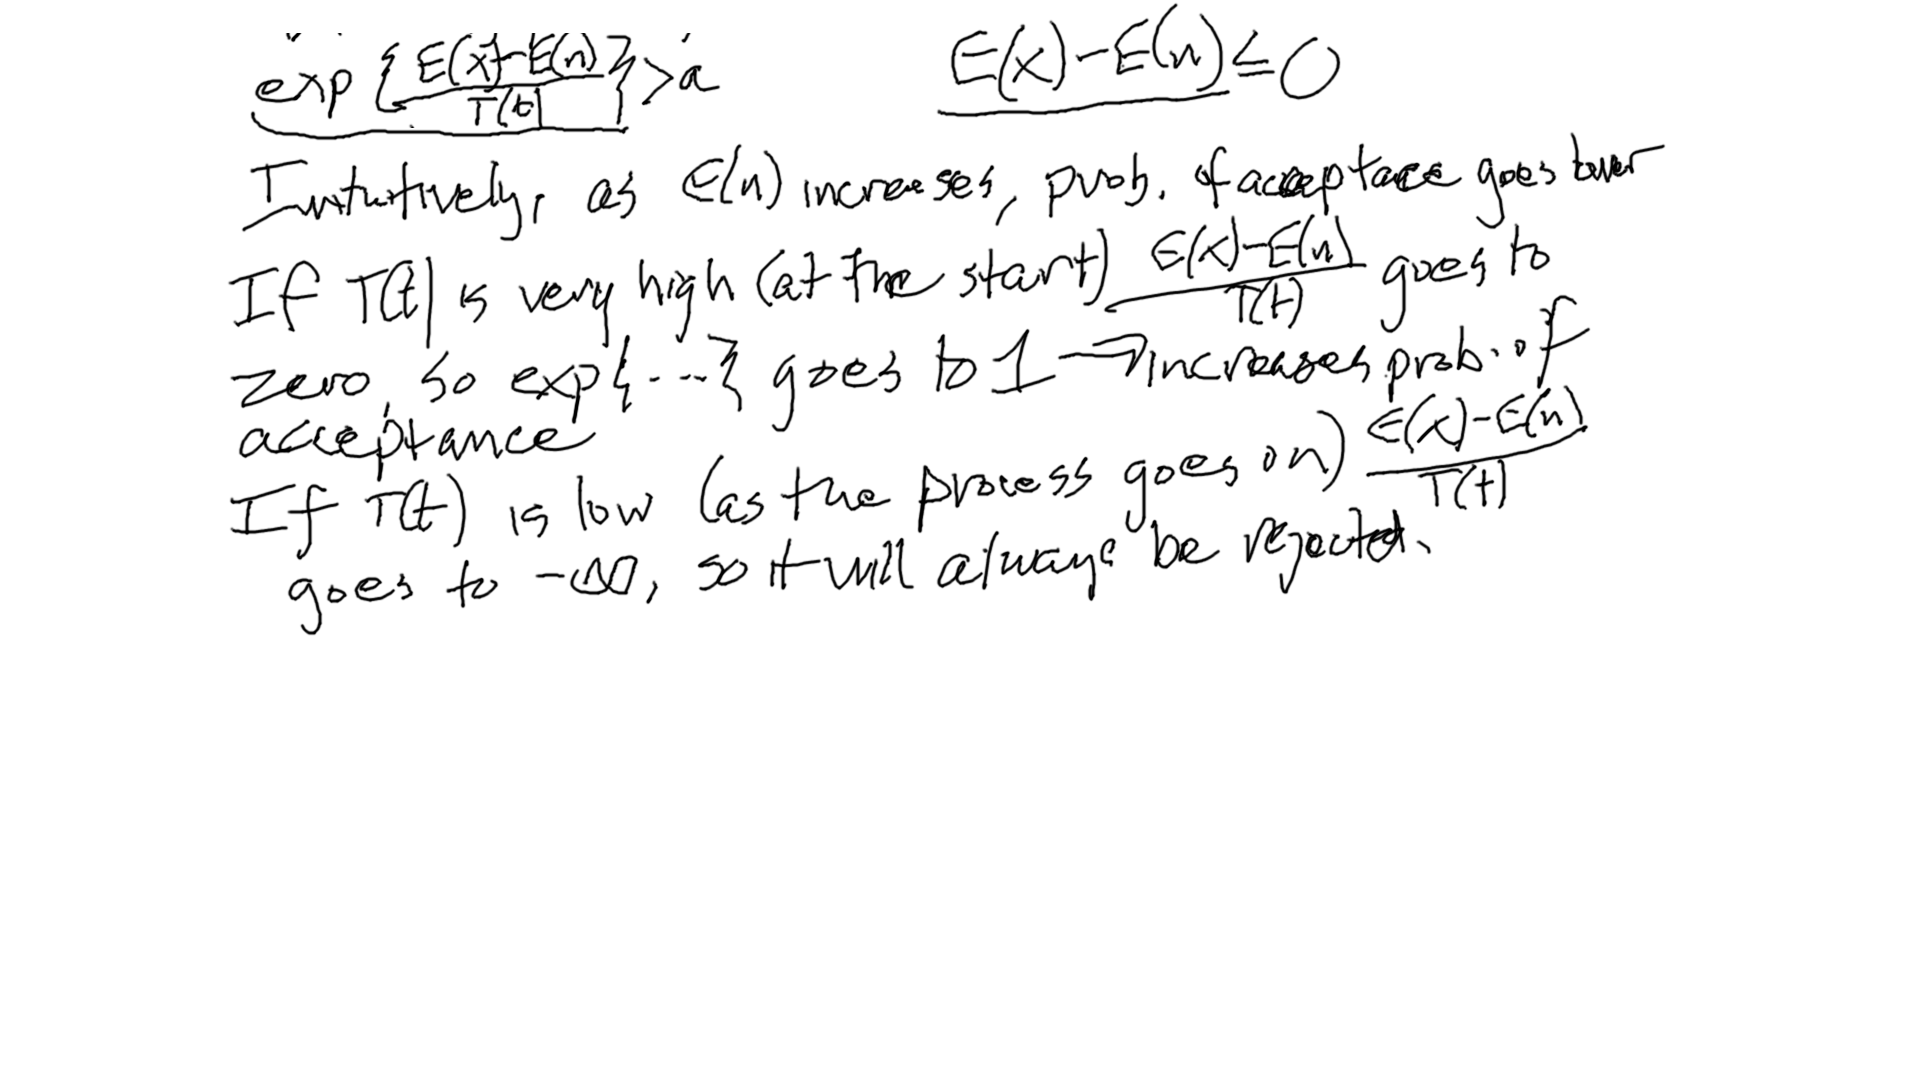 exp { E(x)-E(n) / T(t) } > a    E(x)-E(n) ≤ 0
Intuitively, as E(n) increases, prob. of acceptace goes lower
If T(t) is very high (at the start) E(x)-E(n) / T(t) goes to
zero, so exp{...} goes to 1 → increases prob. of
acceptance
If T(t) is low (as the process goes on) E(x)-E(n) / T(t)
goes to -∞, so it will always be rejected.